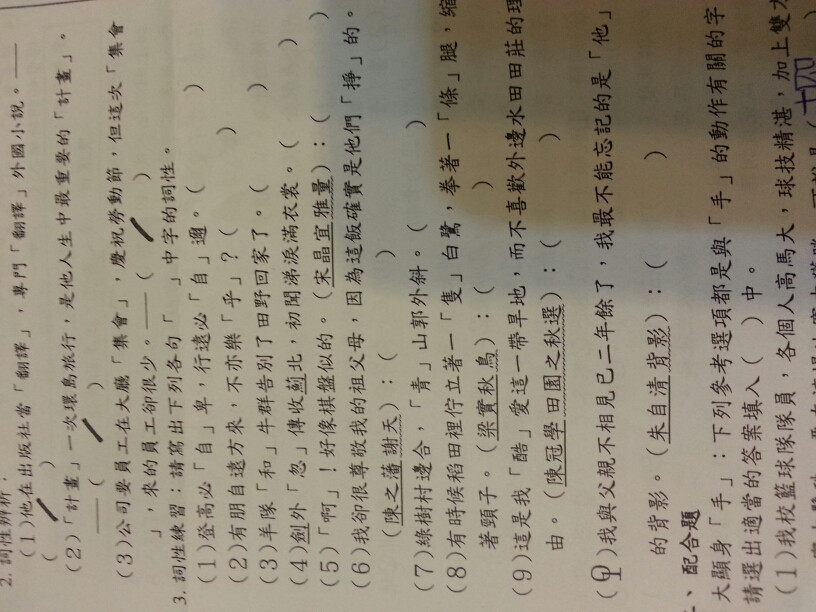 2. 詞性辨析：
(1)他在出版社當「翻譯」，專門「翻譯」外國小說。
( )
(2)「計畫」一次環島旅行，是他人生中最重要的「計畫」。
( )
(3)公司要員工在大廳「集會」，慶祝勞動節，但這次「集會
」，來的員工卻很少。 ( )
3. 詞性練習：請寫出下列各句「 」中字的詞性。
(1)登高必「自」卑，行遠必「自」邇。( )
(2)有朋自遠方來，不亦樂「乎」？( )
(3)羊隊「和」牛群告別了田野回家了。( )
(4)劍外「忽」傳收薊北，初聞涕淚滿衣裳。( )
(5)「啊」！好像棋盤似的。(宋晶宜 雅量)：( )
(6)我卻很尊敬我的祖父母，因為這飯確實是他們「掙」的。
(陳之藩 謝天)：( )
(7)綠樹村邊合，「青」山郭外斜。( )
(8)有時候稻田裡佇立著一「隻」白鷺，拳著一「條」腿，縮
著頸子。(梁實秋 鳥)：( )
(9)這是我「酷」愛這一帶旱地，而不喜歡外邊水田田莊的理
由。(陳冠學 田園之秋選)：( )
我與父親不相見已二年餘了，我最不能忘記的是「他」
的背影。(朱自清 背影)：( )
、配合題
大顯身「手」：下列參考選項都是與「手」的動作有關的字
請選出適當的答案填入( )中。
(1)我校籃球隊隊員，各個人高馬大，球技精湛，加上雙方